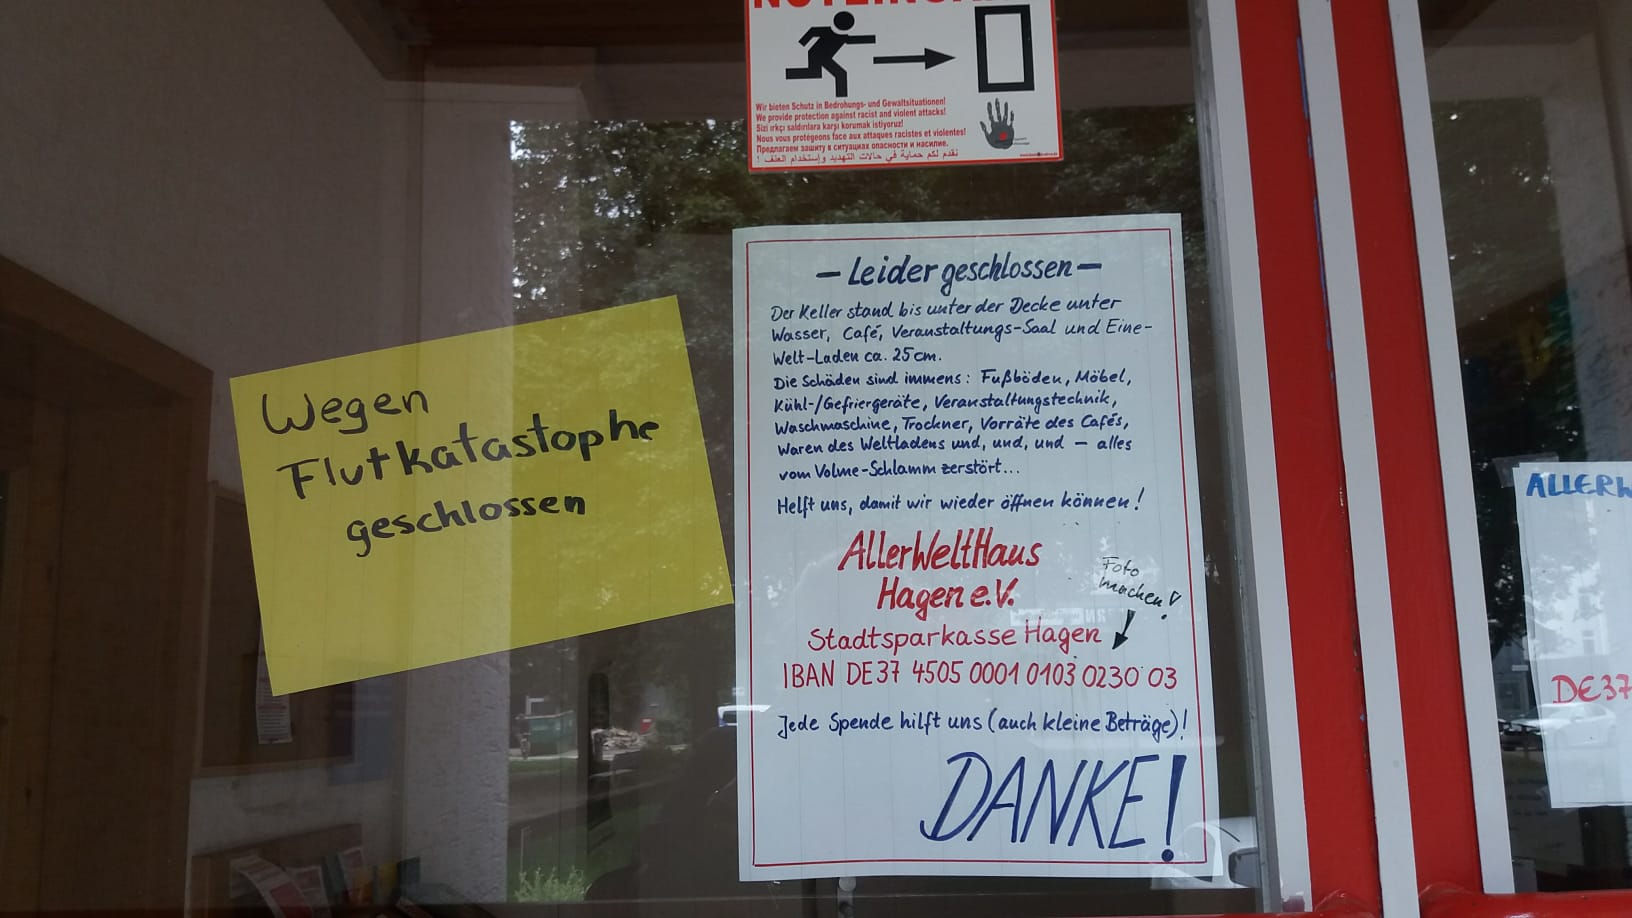 Wir bieten Schutz in Bedrohungs- und Gewaltsituationen!
We provide protection against racist and violent attacks!
Sizi ırkçı saldırılara karşı korumak istiyoruz!
Nous vous protégeons face aux attaques racistes et violentes!
Предлагаем защиту в ситуациях опасности и насилие.
نقدم لكم حماية في حالات التهديد وإستخدام العنف !
Wegen
Flutkatastophe
geschlossen
– Leider geschlossen –
Der Keller stand bis unter der Decke unter
Wasser, Café, Veranstaltungs-Saal und Eine-
Welt-Laden ca. 25cm.
Die Schäden sind immens: Fußböden, Möbel,
Kühl-/Gefriergeräte, Veranstaltungstechnik,
Waschmaschine, Trockner, Vorräte des Cafés,
Waren des Weltladens und, und, und – alles
vom Volme-Schlamm zerstört...
Helft uns, damit wir wieder öffnen können!
AllerWeltHaus
Hagen e.V.
Foto
machen!
Stadtsparkasse Hagen
IBAN DE37 4505 0001 0103 0230 03
Jede Spende hilft uns (auch kleine Beträge)!
DANKE!
ALLERW
DE37